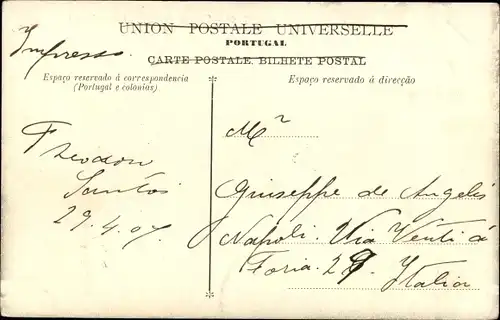 UNION POSTALE UNIVERSELLE
PORTUGAL
CARTE POSTALE. BILHETE POSTAL
Impresso.
Espaço reservado á correspondencia
(Portugal e colonias)
Espaço reservado á direcção
Mr
Theodoro
Santos
29.4.07.
Giuseppe de Angelis
Napoli. Via Venti á
Foria. 29. Italia